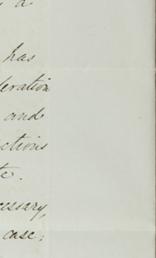 a
has
eration
and
ctions
te.
cessary,
case;